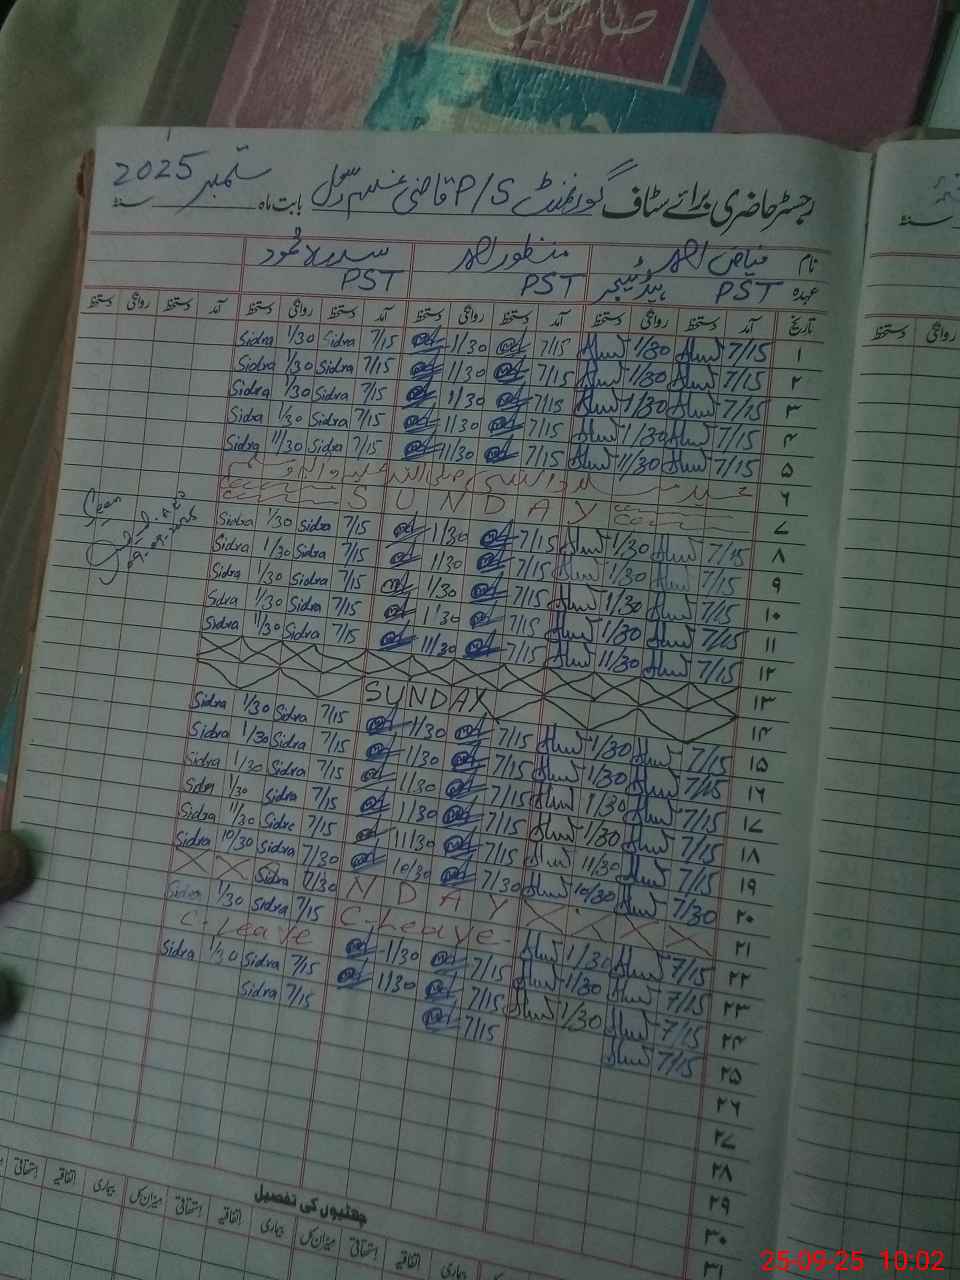 صاحب
رجسٹر حاضری برائے سٹاف گورنمنٹ P/S قاضی غلام رسول بابت ماہ ستمبر 2025 سنہ
نام فیاض احمد منظور احمد سدرہ محمود
عہدہ PST ہیڈ ٹیچر PST PST
تاریخ آمد دستخط روانگی دستخط آمد دستخط روانگی دستخط آمد دستخط روانگی دستخط آمد دستخط روانگی دستخط
روانگی دستخط
۱ 7/15 1/30 7/15 1/30 7/15 Sidra 1/30 Sidra
۲ 7/15 1/30 7/15 1/30 7/15 Sidra 1/30 Sidra
۳ 7/15 1/30 7/15 1/30 7/15 Sidra 1/30 Sidra
۴ 7/15 1/30 7/15 1/30 7/15 Sidra 1/30 Sidra
۵ 7/15 11/30 7/15 11/30 7/15 Sidra 11/30 Sidra
۶ عید میلاد النبی صلی اللہ علیہ وآلہ وسلم
۷ SUNDAY
۸ 7/15 1/30 7/15 1/30 7/15 Sidra 1/30 Sidra
۹ 7/15 1/30 7/15 1/30 7/15 Sidra 1/30 Sidra
۱۰ 7/15 1/30 7/15 1/30 7/15 Sidra 1/30 Sidra
۱۱ 7/15 1/30 7/15 1/30 7/15 Sidra 1/30 Sidra
۱۲ 7/15 11/30 7/15 11/30 7/15 Sidra 11/30 Sidra
۱۳
۱۴ SUNDAY
۱۵ 7/15 1/30 7/15 1/30 7/15 Sidra 1/30 Sidra
۱۶ 7/15 1/30 7/15 1/30 7/15 Sidra 1/30 Sidra
۱۷ 7/15 1/30 7/15 1/30 7/15 Sidra 1/30 Sidra
۱۸ 7/15 1/30 7/15 1/30 7/15 Sidra 1/30 Sidra
۱۹ 7/15 11/30 7/15 11/30 7/15 Sidra 11/30 Sidra
۲۰ 7/30 10/30 7/30 10/30 7/30 Sidra 10/30 Sidra
۲۱ NDAY Sidra 7/30
۲۲ 7/15 1/30 C-Leave 7/15 Sidra 1/30 Sidra
۲۳ 7/15 1/30 7/15 1/30 C-Leave
۲۴ 7/15 1/30 7/15 1/30 7/15 Sidra 1/30 Sidra
۲۵ 7/15 7/15 7/15 Sidra
۲۶
۲۷
۲۸
۲۹
۳۰
۳۱
چھٹیوں کی تفصیل
بیماری اتفاقیہ استحقاقی میزان کل بیماری اتفاقیہ استحقاقی میزان کل بیماری اتفاقیہ استحقاقی
25-09-25 10:02